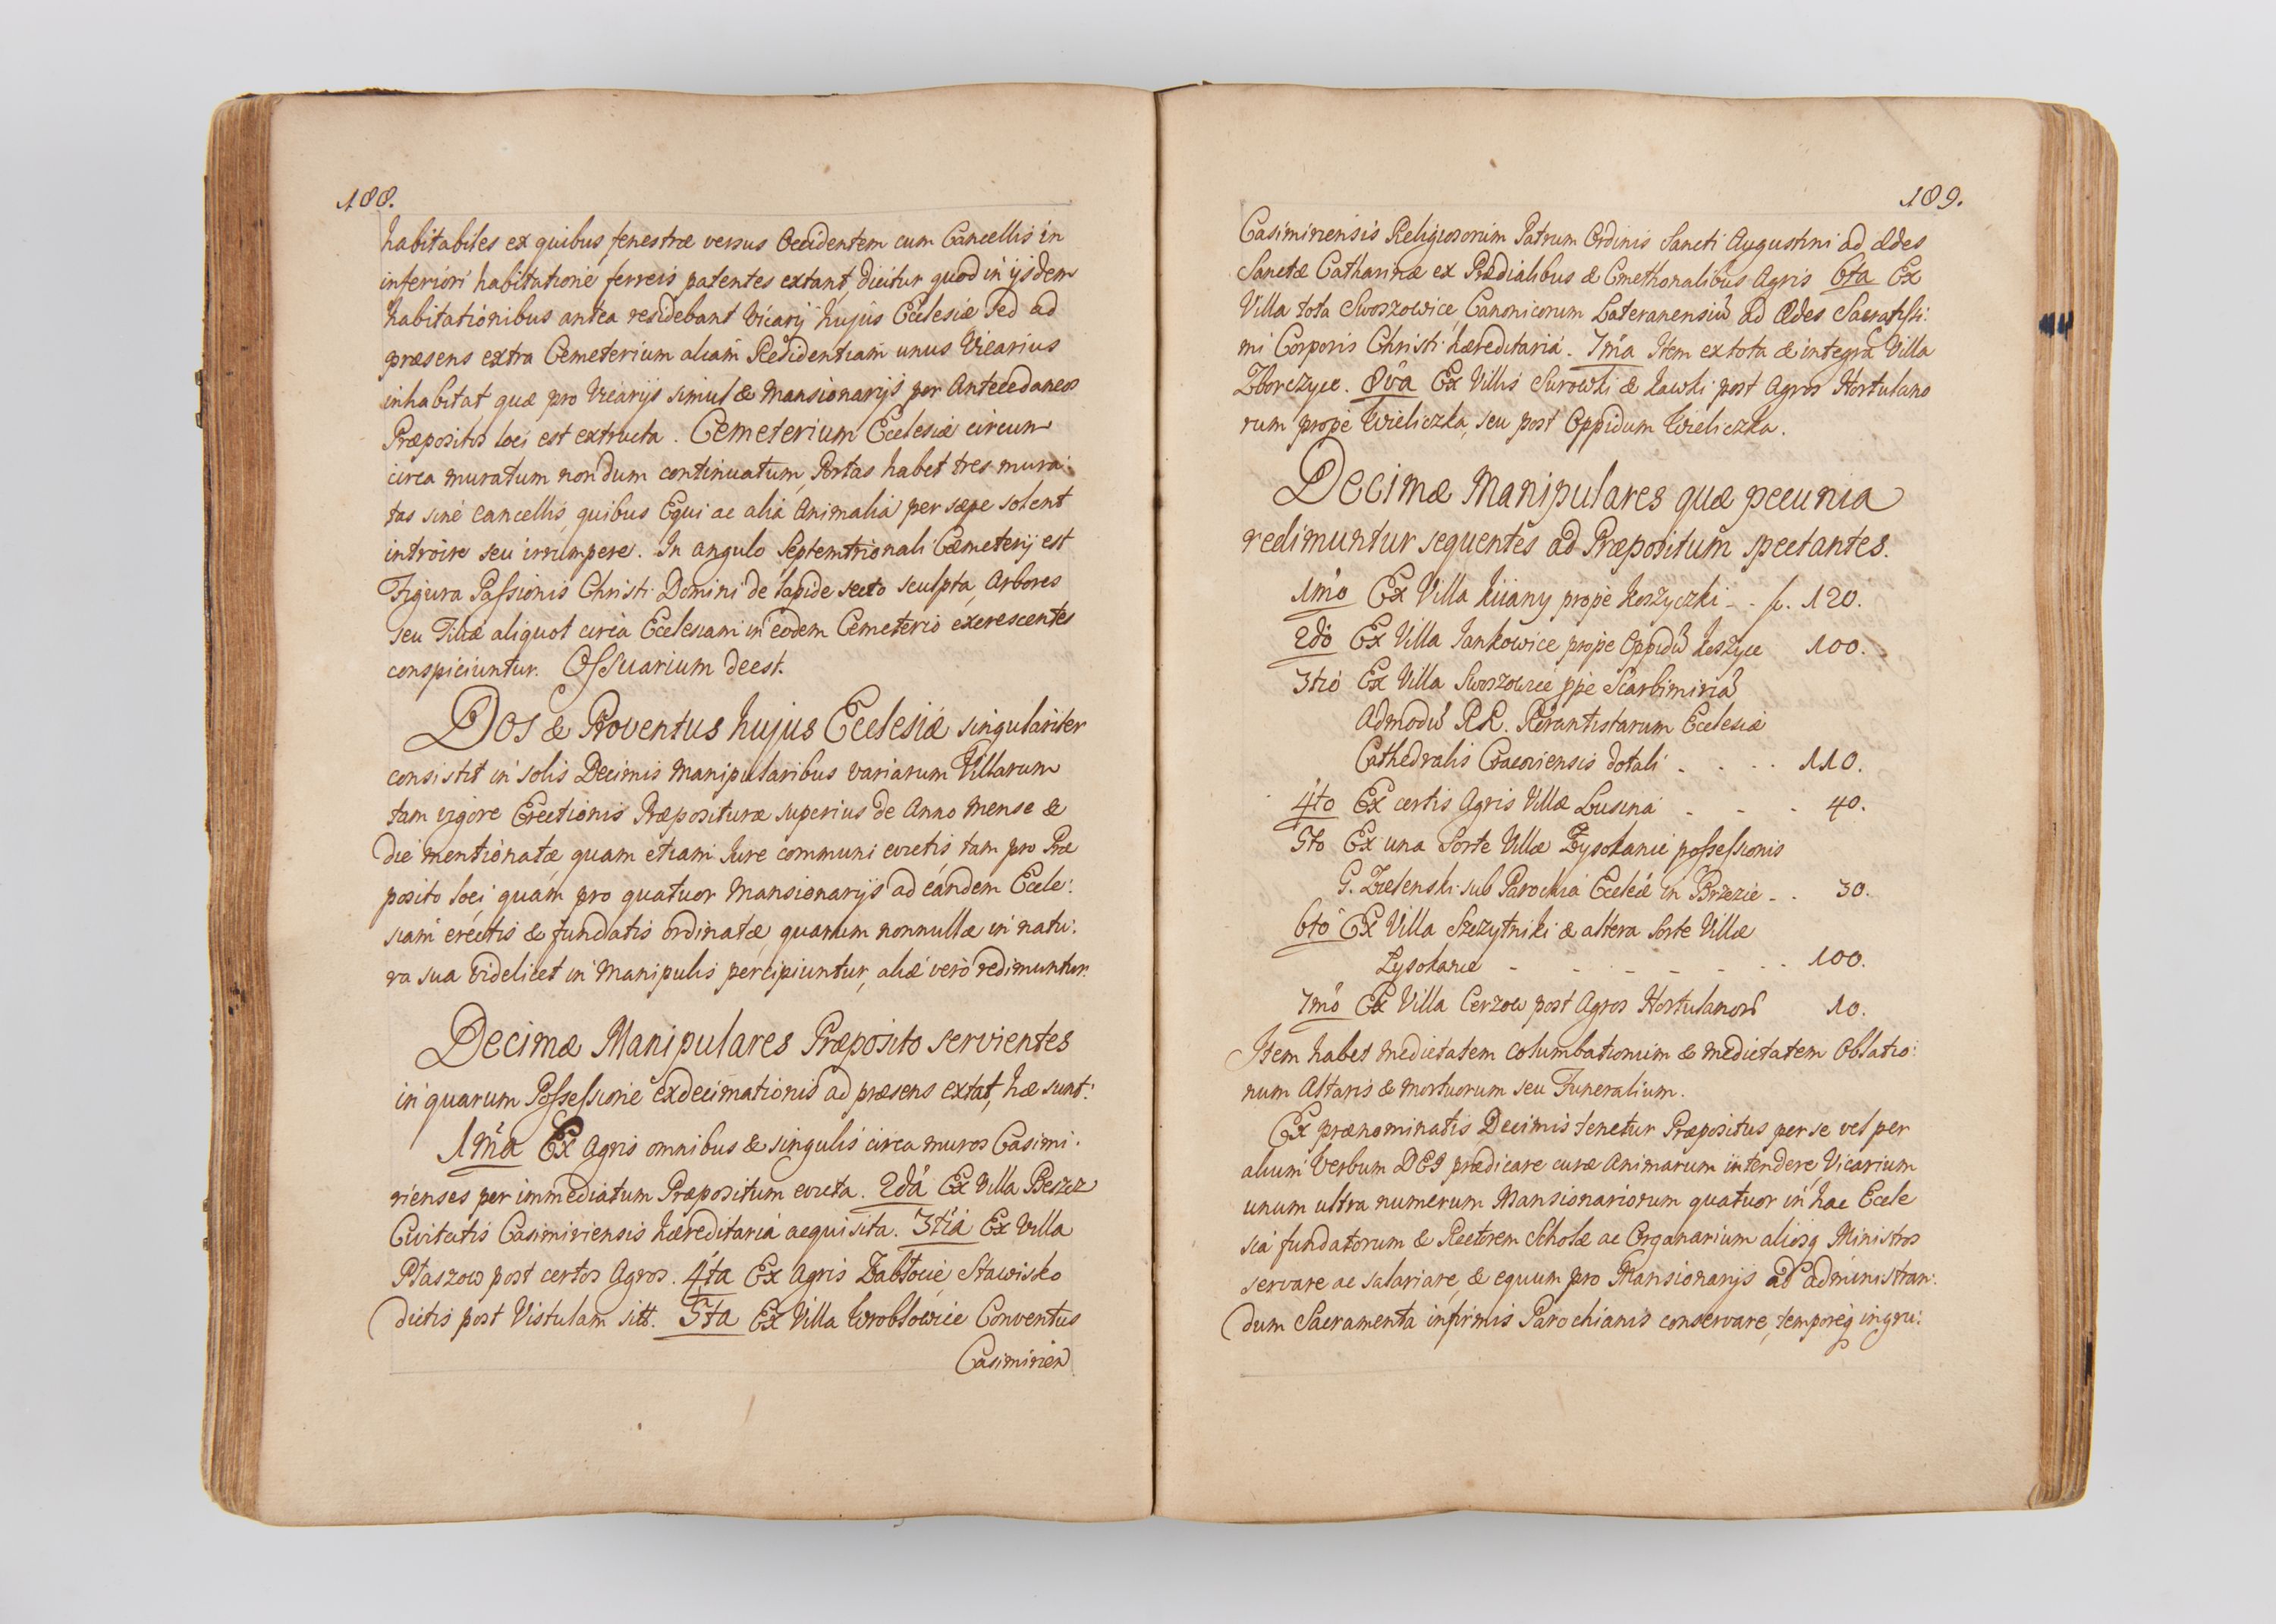 188.
habitabiles ex quibus fenestræ versus Occidentem cum Cancellis in
inferiori habitatione ferreis patentes extant, dicitur quod in ijsdem
habitationibus antea residebant Vicarij hujus Ecclesiæ sed ad
præsens extra Cemeterium aliam Residentiam unus Vicarius
inhabitat quæ pro Vicarijs simul & Mansionarijs per Antecedaneos
Præpositos loci est extructa. Cemeterium Ecclesiæ circum
circa muratum nondum continuatum, Portas habet tres mura:
tas sine cancellis, quibus Equi ac alia Animalia per sæpe solent
introire seu irrumpere. In angulo Septemtrionali Cæmeterij est
Figura Passionis Christi Domini de lapide secto sculpta, Arbores
seu Tiliæ aliquot circa Ecclesiam in eodem Cemeterio excrescentes
conspiciuntur. Ossuarium deest.
Dos & Proventus hujus Ecclesiæ singulariter
consistit in solis Decimis Manipularibus variarum Villarum
tam vigore Erectionis Præposituræ superius de Anno Mense &
die mentionatæ, quam etiam Jure communi evictis, tam pro Præ
posito loci quam pro quatuor Mansionarijs ad eandem Eccle:
siam erectis & fundatis ordinatæ, quarum nonnullæ in natu:
ra sua videlicet in Manipulis percipiuntur, aliæ vero redimuntur.
Decimæ Manipulares Præposito servientes
in quarum Possessione exdecimationis ad præsens extat, hæ sunt:
1ma Ex Agris omnibus & singulis circa muros Casimi:
rienses per immediatum Præpositum evicta. 2da Ex Villa Beszcz
Civitatis Casimiriensis hæreditaria acquisita. 3tia Ex Villa
Płaszow post certos Agros. 4ta Ex Agris Zabłocie, Stawisko
dictis post Vistulam sitt. 5ta Ex Villa Wroblowice Conventus
Casimirien
189.
Casimiriensis Religiosorum Patrum Ordinis Sancti Augustini ad Ædes
Sanctæ Catharinæ ex Prædialibus & Cmethonalibus Agris 6ta Ex
Villa tota Swoszowice, Canonicorum Lateranensiũ ad Ædes Sacratissi:
mi Corporis Christi hæreditaria. 7ma Item ex tota & integra Villa
Zborczyce. 8va Ex Villis Surowki & Lawki post Agros Hortulano
rum prope Wieliczka, seu post Oppidum Wieliczka.
Decimæ Manipulares quæ pecunia
redimuntur sequentes ad Præpositum spectantes.
1mo Ex Villa Kiiany prope Koszyczki - . f. 120.
2do Ex Villa Jankowice prope Oppidũ Koszyce 100.
3tio Ex Villa Swoszowice ppe Scarbimiriã
Admodũ RR. Rorantistarum Ecclesiæ
Cathedralis Cracoviensis dotali . . . . 110.
4to Ex certis Agris Villæ Lusina - - . 40.
5to Ex una Sorte Villæ Łysokanie possessionis
G. Zielenski sub Parochia Eccleæ in Brzezie - . 30.
6to Ex Villa Szczytniki & altera Sorte Villæ
Łysokanie - - - - - . 100.
7mo Ex Villa Cerzow post Agros Hortulanorũ 10.
Item habet medietatem columbationum & medietatem Oblatio:
num Altaris & Mortuorum seu Funeralium.
Ex prænominatis Decimis tenetur Præpositus per se vel per
alium Verbum DEI prædicare curæ Animarum intendere, Vicarium
unum ultra numerum Mansionariorum quatuor in hac Eccle
sia fundatorum & Rectorem Scholæ ac Organarium aliosq Ministros
servare ac salariare, & equum pro Mansionarijs ad administran:
dum Sacramenta infirmis Parochianis conservare, temporeq ingru: